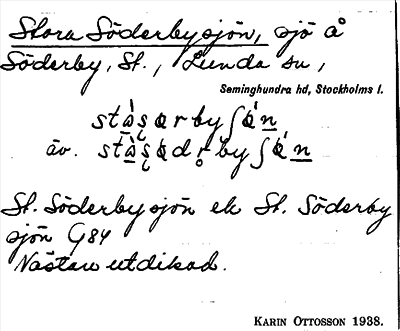 Stora Söderbysjön, sjö å
Söderby, St., Lunda sn,
Seminghundra hd, Stockholms l.
äv.
St. Söderbysjön el. St. Söderby
sjön G84
Nästan utdikad.
KARIN OTTOSSON 1938.